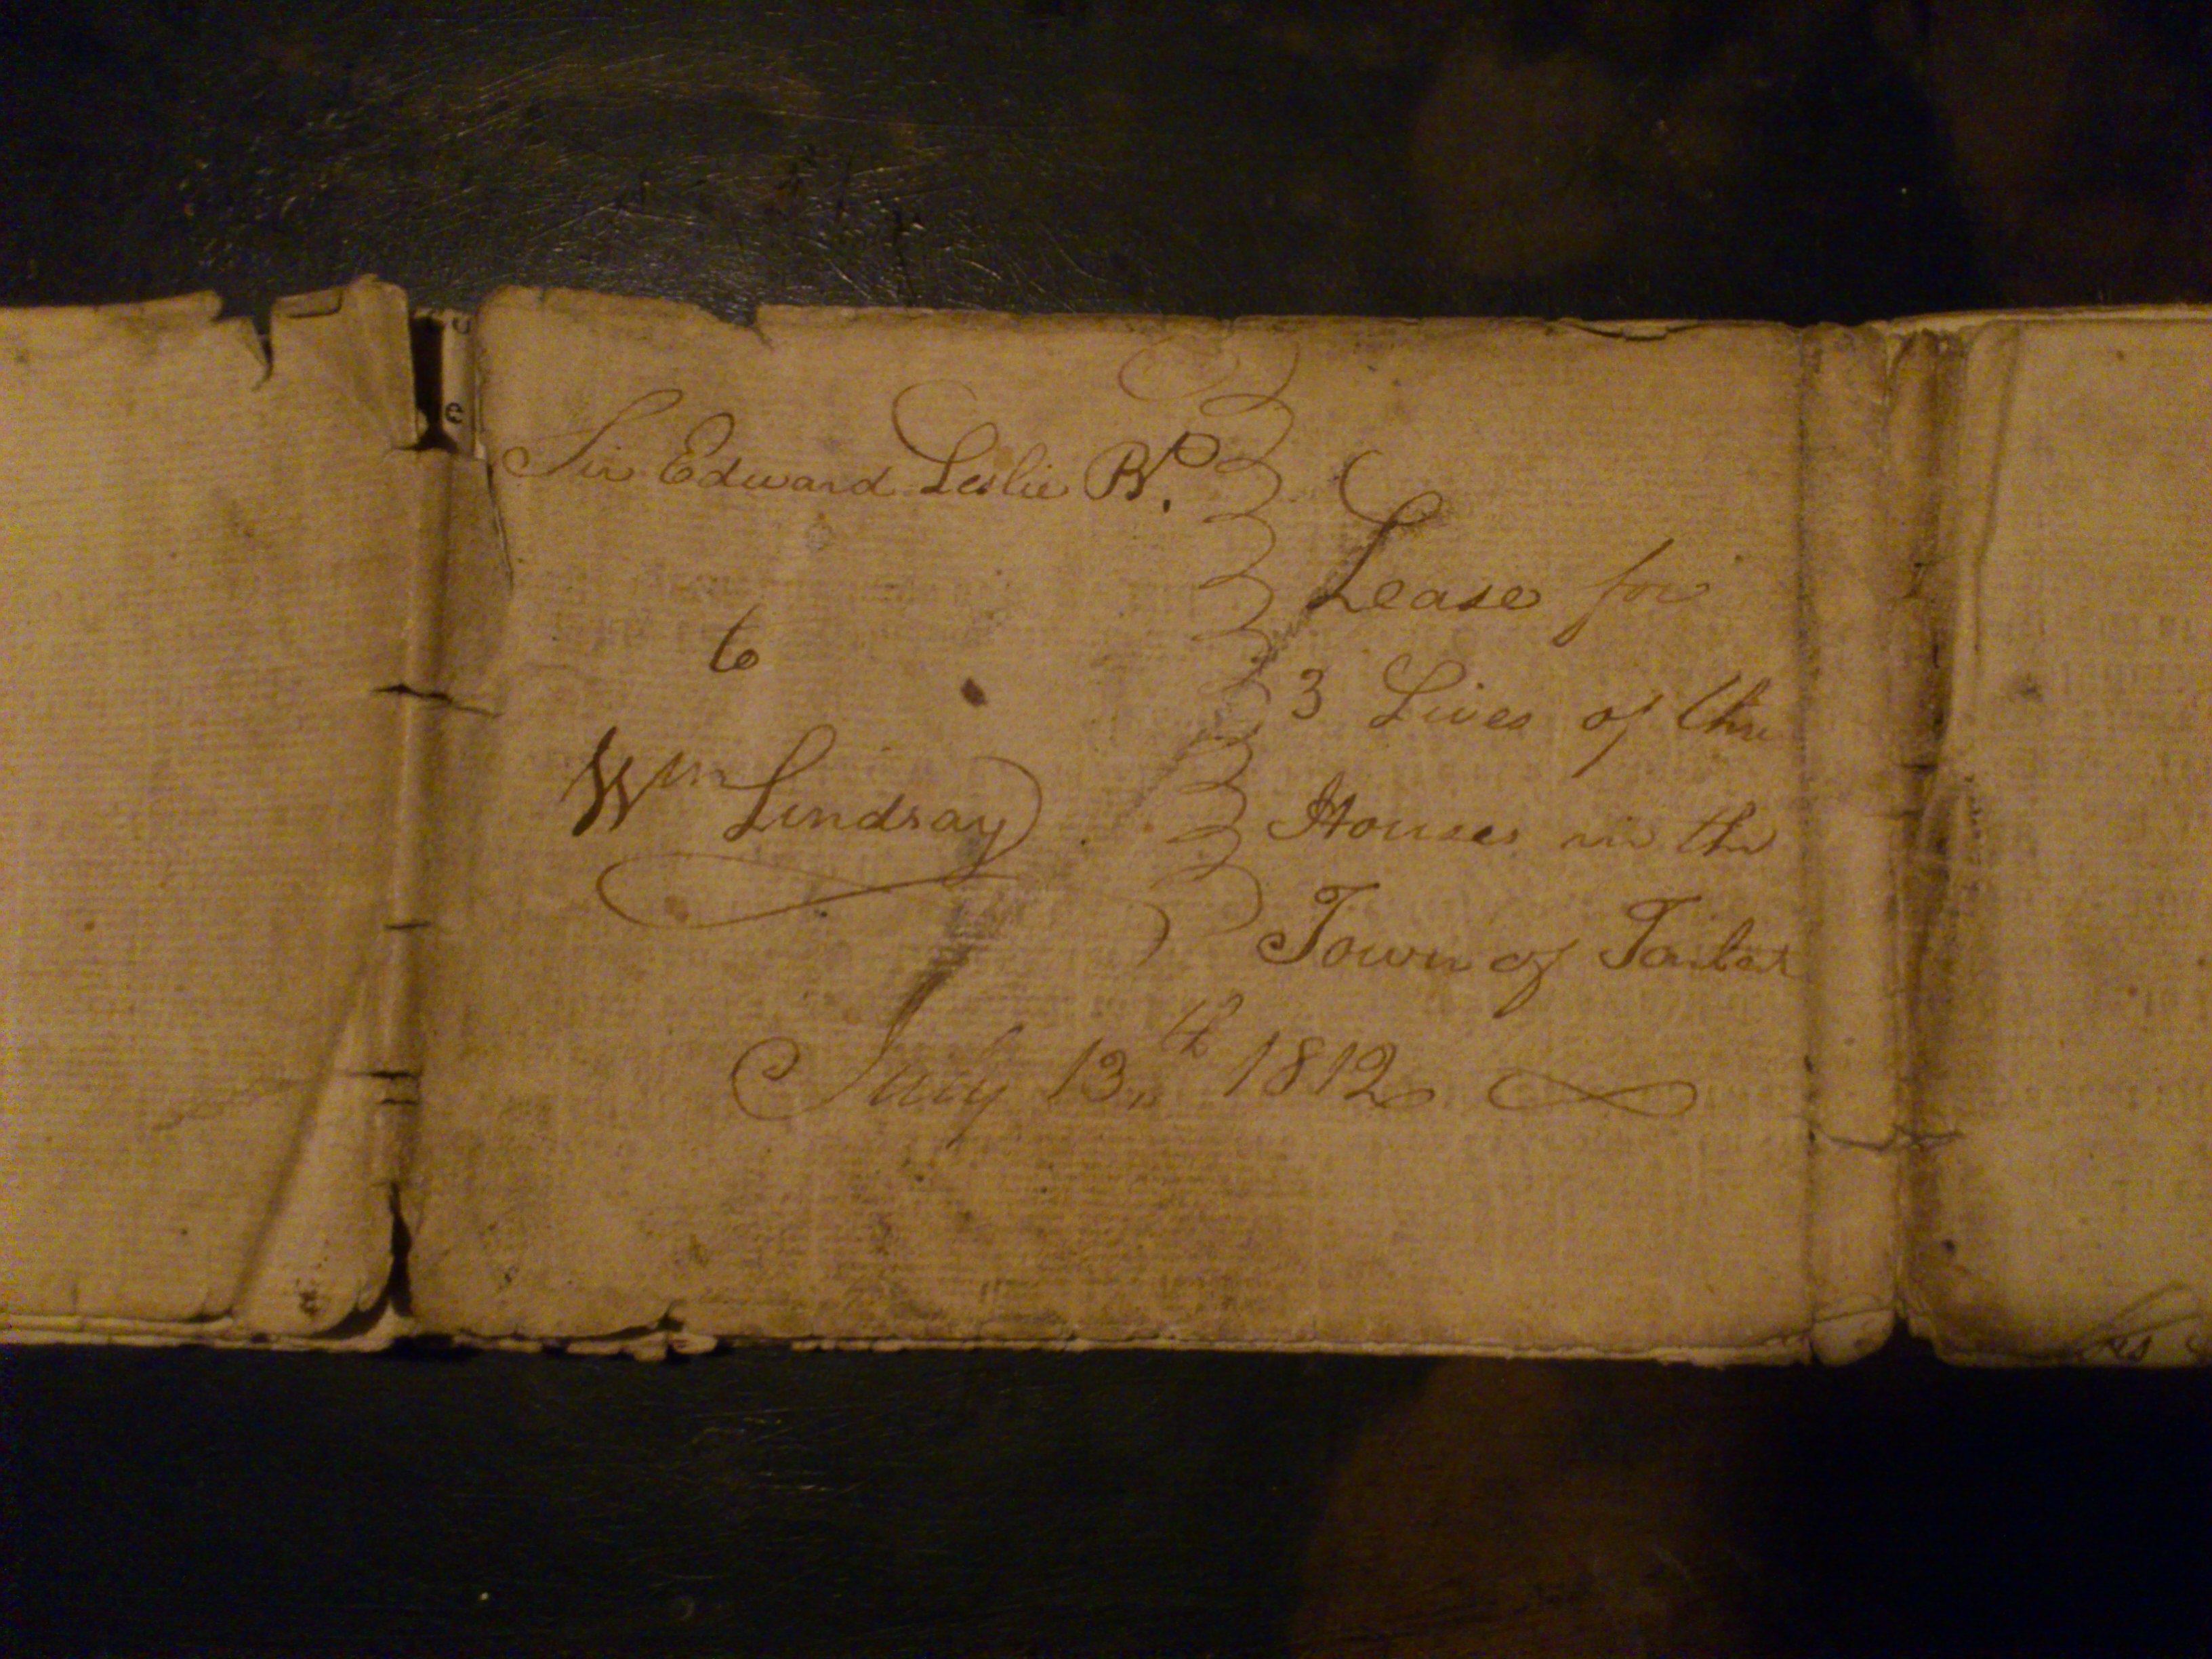 Sir Edward Leslie Bt.
to
Wm Lindsay
Lease for
3 Lives of the
Houses in the
Town of Tarbert
July 13th 1812
e